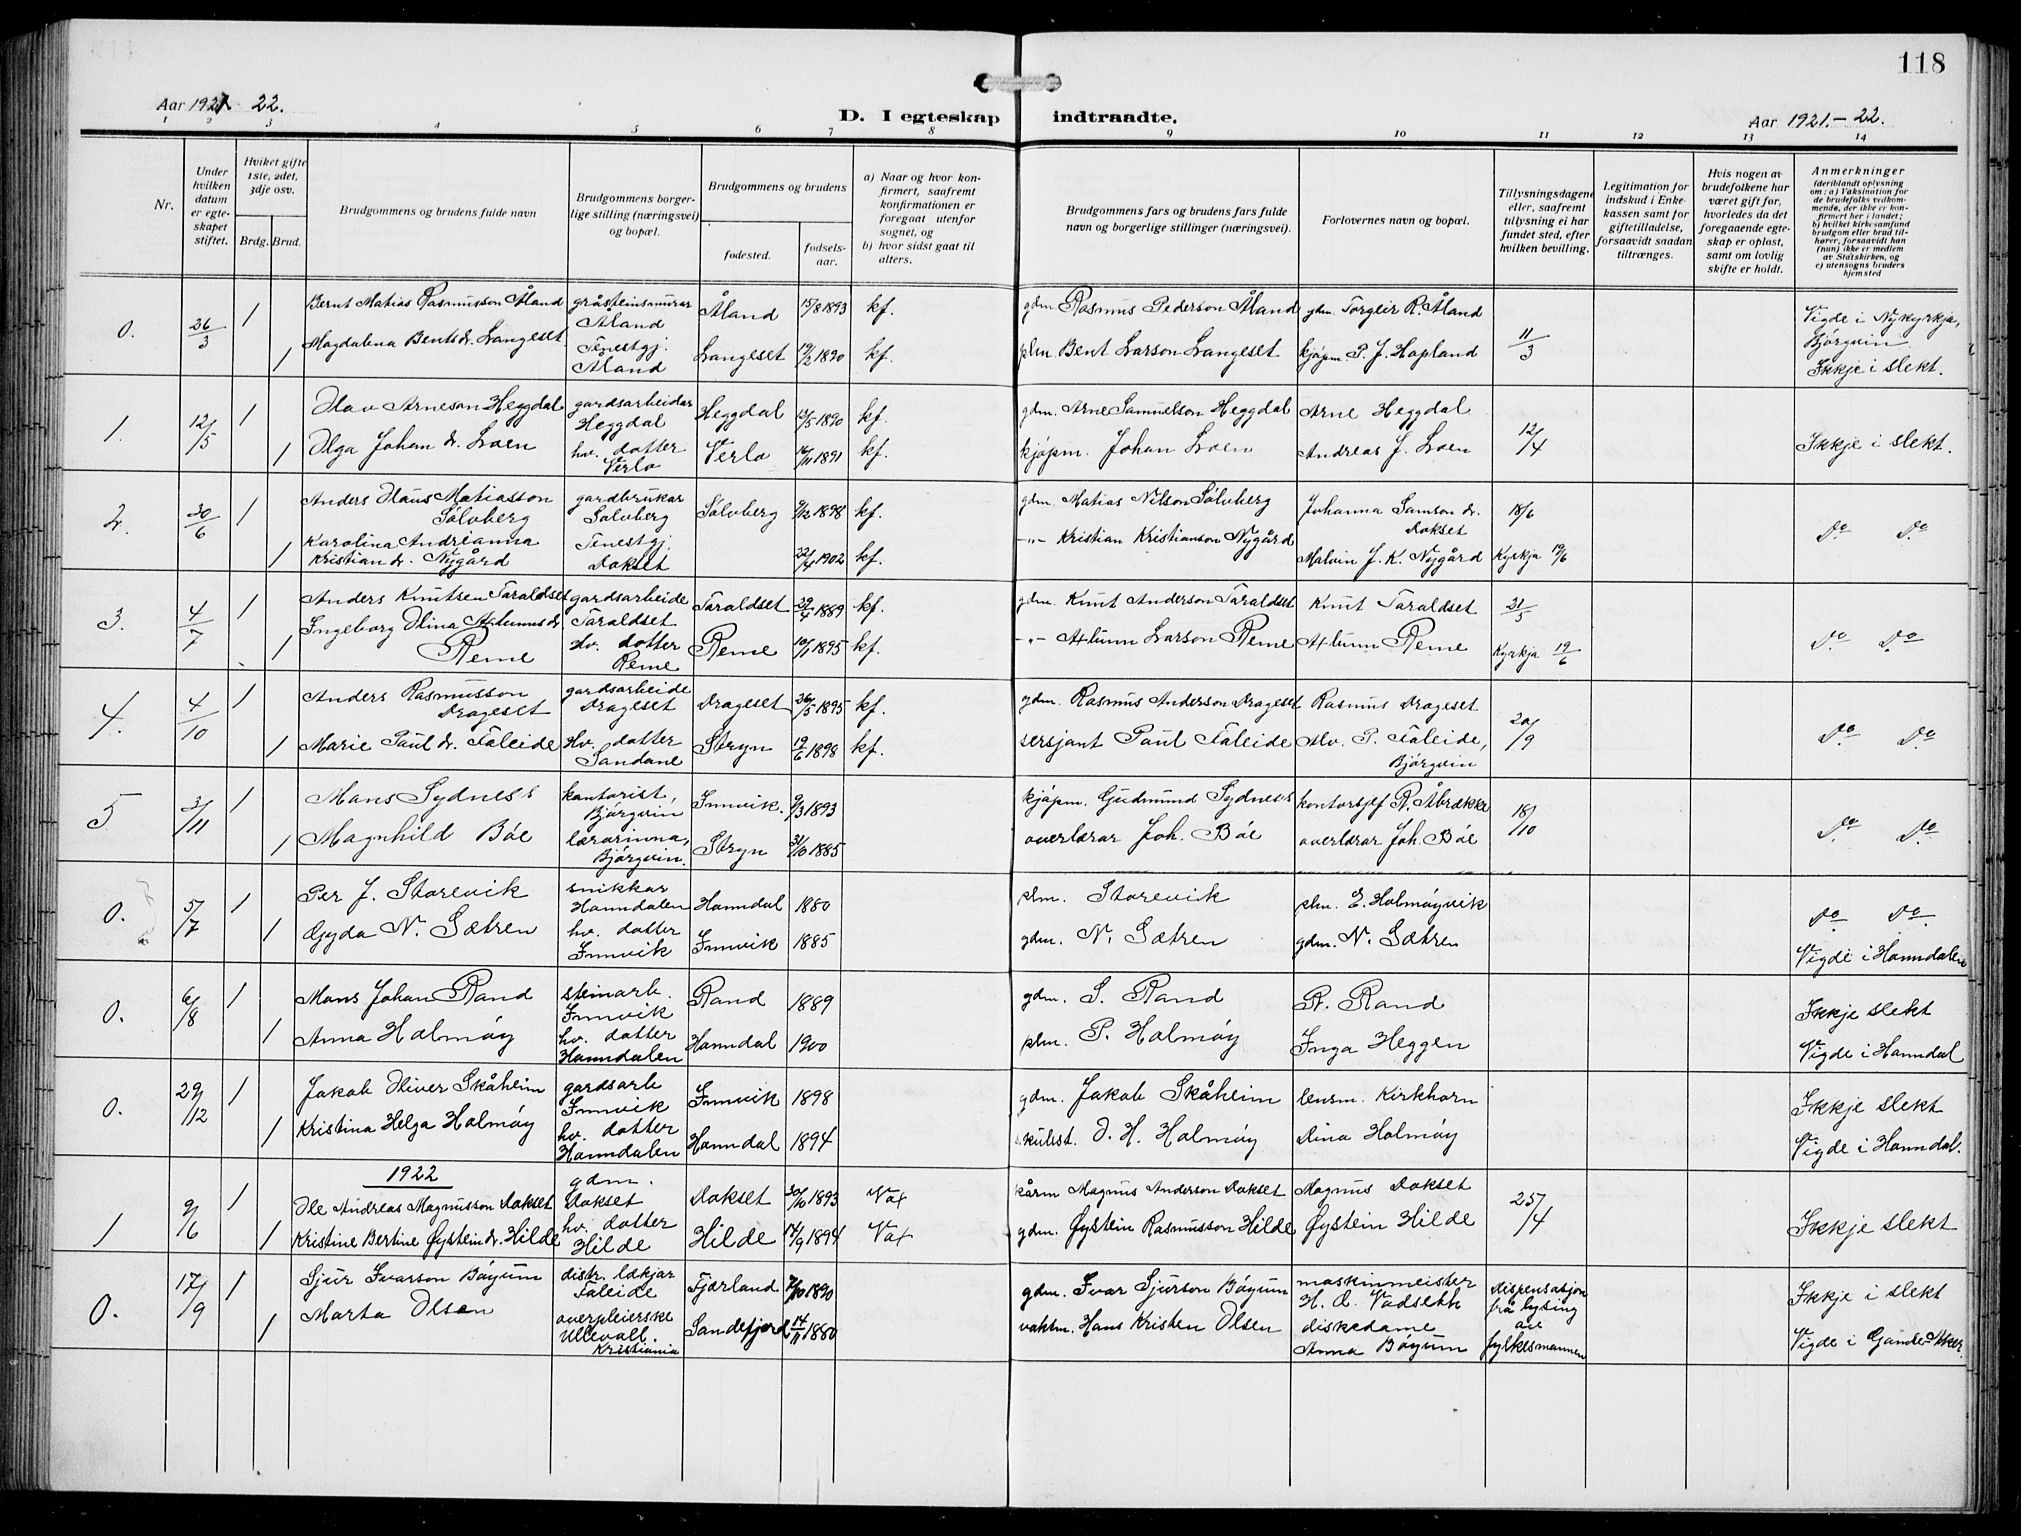 118
Aar 1921 22.
D. I egteskap indtraadte.
Aar 1921.-22.
1 2 3 4 5 6 7 8 9 10 11 12 13 14
Nr.
Under hvilken datum er egteskapet stiftet.
Hvilket gifte 1ste, 2det, 3dje osv.
Brdg. Brud.
Brudgommens og brudens fulde navn
Brudgommens borgerlige stilling (næringsvei) og bopæl.
Brudgommens og brudens
fødested.
fødselsaar.
a) Naar og hvor konfirmert, saafremt konfirmationen er foregaat utenfor sognet, og
b) hvor sidst gaat til alters.
Brudgommens fars og brudens fars fulde navn og borgerlige stillinger (næringsvei).
Forlovernes navn og bopæl.
Tillysningsdagene eller, saafremt tillysning ei har fundet sted, efter hvilken bevilling.
Legitimation for indskud i Enkekassen samt for giftetilladelse, forsaavidt saadan tiltrænges.
Hvis nogen av brudefolkene har været gift før, hvorledes da det foregaaende egteskap er opløst, samt om lovlig skifte er holdt.
Anmerkninger
(deriblandt oplysning om: a) Vaksination for de brudefolks vedkommende, der ikke er konfirmert her i landet; b) hvilket kirkesamfund brudgom eller brud tilhører, forsaavidt han (hun) ikke er medlem av Statskirken, og c) utensogns bruders hjemsted
0. 26/3 1 Bernt Matias Rasmusson Åland gråsteinsmurar Åland Åland 15/8 1893 kf. gdm Rasmus Pederson Åland gdm. Torgleir R. Åland 11/3 Vigde i Nykyrkja, Bjørgvin
1 Magdalena Bents dr. Langeset Tenestgj. Åland Langeset 19/2 1890 kf. plm Bent Larson Langeset kjøpm P. J. Hopland Ikkje i slekt.
1. 12/5 1 Olav Arneson Heggdal gardsarbeidar Heggdal Heggdal 13/5 1890 kf. gdm. Arne Samuelson Heggdal Arne Heggdal 12/4 Ikkje i slekt.
1 Olga Johan dr. Loen hv. dotter Verlo Verlo 16/11 1891 kf. kjøpm. Johan Loen Andreas J. Loen
2. 30/6 1 Anders Olaus Matiasson Sølvberg gardbrukar Sølvberg Sølvberg 9/12 1898 kf. gdm. Matias Nilson Sølvberg Johanna Samson dr. Dokset 18/6 Do Do
1 Karolina Andrianna Kristian dr. Nygård Tenestgj. Dokset 22/4 1902 kf. -"- Kristian Kristianson Nygård Malvin J. K. Nygård Kyrkja 19/6
3. 4/7 1 Anders Knutsen Taraldset gardsarbeide Taraldset Taraldset 29/4 1889 kf. gdm. Knut Anderson Taraldset Knut Taraldset 31/5 Do Do
1 Ingeborg Olina Reme Hv. dotter Reme Reme 10/1 1895 kf. -"- Larson Reme Reme Kyrkja 19/6
4. 4/10 1 Anders Rasmusson Drageset gardsarbeide Drageset Drageset 26/5 1895 kf. gdm. Rasmus Anderson Drageset Rasmus Drageset 20/9 Do Do
1 Marie Paul dr. Faleide Hv. dotter Sandane Stryn 19/6 1898 kf. sersjant Paul Faleide Alv. P. Faleide, Bjørgvin
5 3/11 1 Mons Sydness kontorist, Bjørgvin Innvik. 9/3 1893 kjøpm. Gudmund Sydness kontorsjef R. Åbrekke 18/10 Do Do
1 Magnhild Bøe lærarinna, Bjørgvin. Stryn 31/10 1885 overlærar Joh. Bøe overlærar Joh. Bøe
0. 5/7 1 Per J. Storevik snikkar Honndalen Honndal 1880 plm. Storevik plm. E. Holmøyvik Do Do
1 Gyda N. Sætren hv. dotter Innvik Innvik 1885 gdm. N. Sætren gdm. N. Sætren Vigde i Honndalen
0. 6/8 1 Mons Johan Rand steinarb. Innvik Rand 1889 gdm. S. Rand R. Rand Ikkje slekt
1 Anna Holmøy hv. dotter Honndalen Honndal 1900 plm. P. Holmøy Inga Heggen Vigde i Honndal
0. 29/12 1 Jakob Oliver Skåheim gardsarb Innvik Innvik 1898 gdm. Jakob Skåheim lensm. Kirkhorn Ikkje slekt
1 Kristina Helga Holmøy hv. dotter Honndalen Honndal 1894 skulest. O. H. Holmøy Dina Holmøy Vigde i Honndal.
1922
1 9/6 1 Ole Andreas Magnusson Dokset gdm. Dokset Dokset 30/10 1893 Vax kårm Magnus Anderson Dokset Magnus Dokset 25/4 Ikkje slekt
1 Kristine Bertine Øystein dr. Hilde hv. dotter Hilde Hilde 14/9 1894 Vax gdm. Øystein Rasmusson Hilde Øystein Hilde
0. 17/9 1 Sjur Ivarson Bøyum distr. lækjar Faleide Fjærland 7/10 1890 gdm. Ivar Sjurson Bøyum maskinmeister H. O. Vadseth Dispensasjon frå lysing av fylkesmannen Ikkje i slekt
1 Marta Olsen overpleierske Ullevall. Kristiania Sandefjord 14/11 1880 vaktm. Hans Kristen Olsen diskedame Anna Bøyum Vigde i